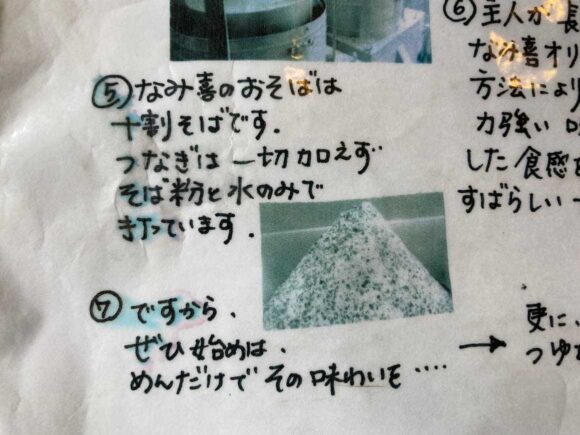 ⑤なみ喜のおそばは
十割そばです.
つなぎは一切加えず
そば粉と水のみで
打っています.
⑥主人が長
なみ喜オリ
方法により
力強い
した食感
すばらしい一
⑦ですから、
ぜひ始めは、
めんだけでその味わいを‥‥
→
更に、
つゆ